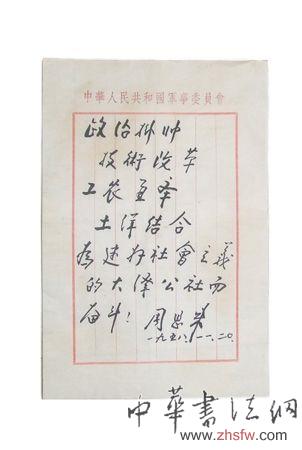 中華人民共和國軍事委員會
政治掛帥
技術改革
工农並举
土洋结合
为建好社會主義
的大泽公社而
奋斗！ 周恩来
一九五八.一一.二〇.
中華書法網
www.zhsfw.com